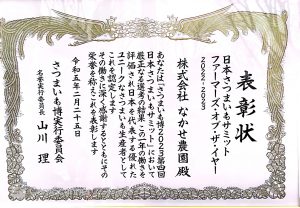 表彰状
日本さつまいもサミット
ファーマーズ・オブ・ザ・イヤー
2022-2023
株式会社 なかせ農園 殿
あなたは、「さつまいも博2023」第四回
日本さつまいもサミットにおいて
厳正なる選考の結果、この一年の働きを
評価され日本を代表する優れた
ユニークなさつまいも生産者として
ここに認定します
その働きに深く感謝するとともにその
栄誉を称えこれを表彰します
令和五年二月二十五日
さつまいも博実行委員会
名誉実行委員長 山川 理